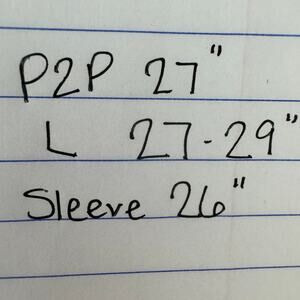 P2P 27"
L 27-29"
Sleeve 26"